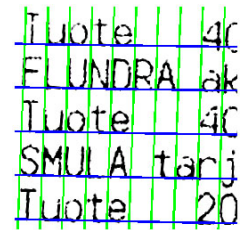 Tuote 40
FLUNDRA ak
Tuote 40
SMULA tarj
Tuote 20